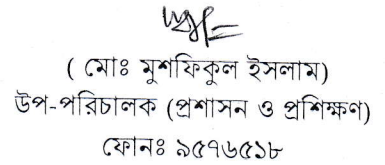 ( মোঃ মুশফিকুল ইসলাম)
উপ-পরিচালক (প্রশাসন ও প্রশিক্ষণ)
ফোনঃ ৯৫৭৬৫১৮